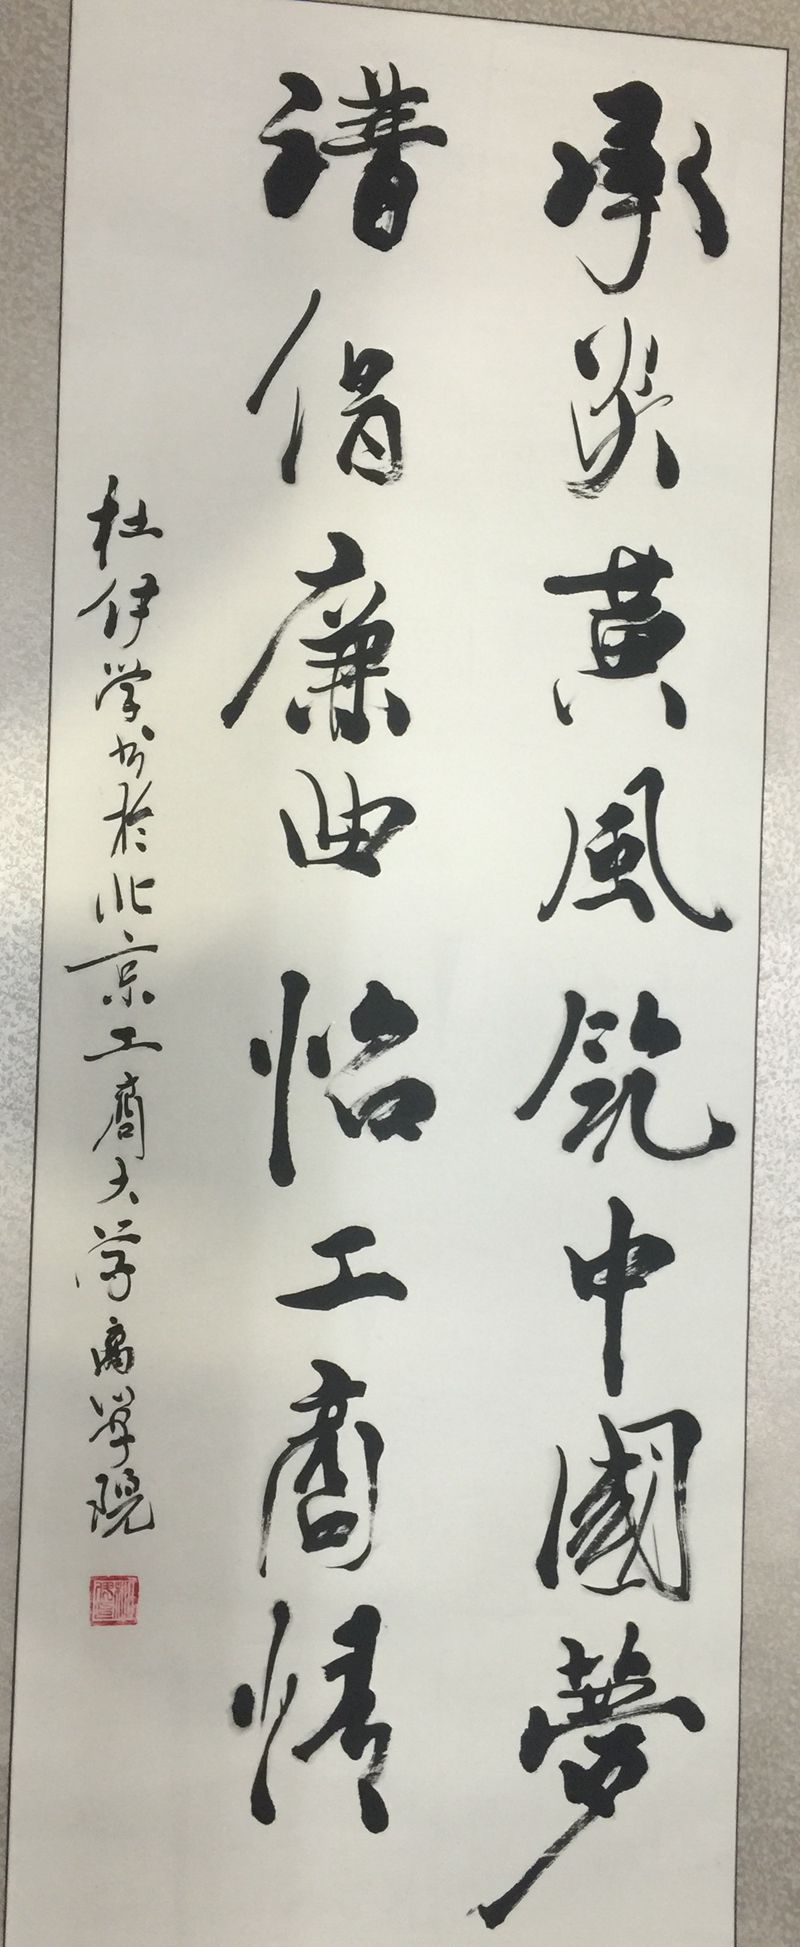 承炎黄風筑中國夢
谱倡廉曲怡工商情
杜伊学书於北京工商大学商学院